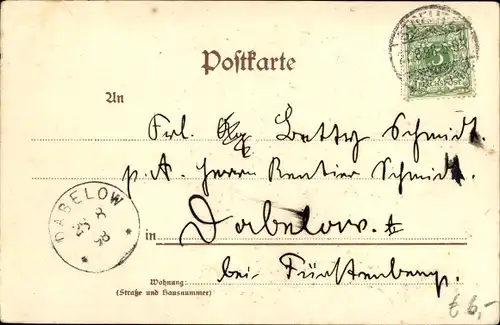 Postkarte
An
Frl. Betty Schmidt.
p. A. Herrn Rentier Schmidt.
in Dabelow.
bei Fürstenberg.
Wohnung:
(Straße und Hausnummer)
DABELOW
8
98
5
€ 6,-